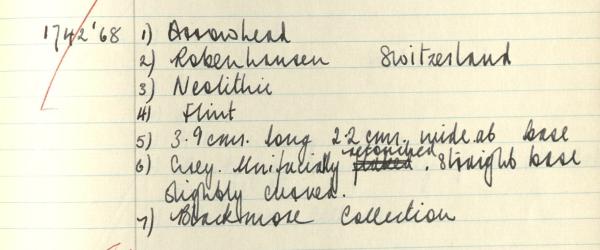 1742'68 1) Arrowhead
2) Robenhausen Switzerland
3) Neolithic
4) Flint
5) 3.9 cms. long 2.2 cms. wide at base
6) Grey. Unifacially flaked retouched. Straight base
slightly
7) Blackmore Collection